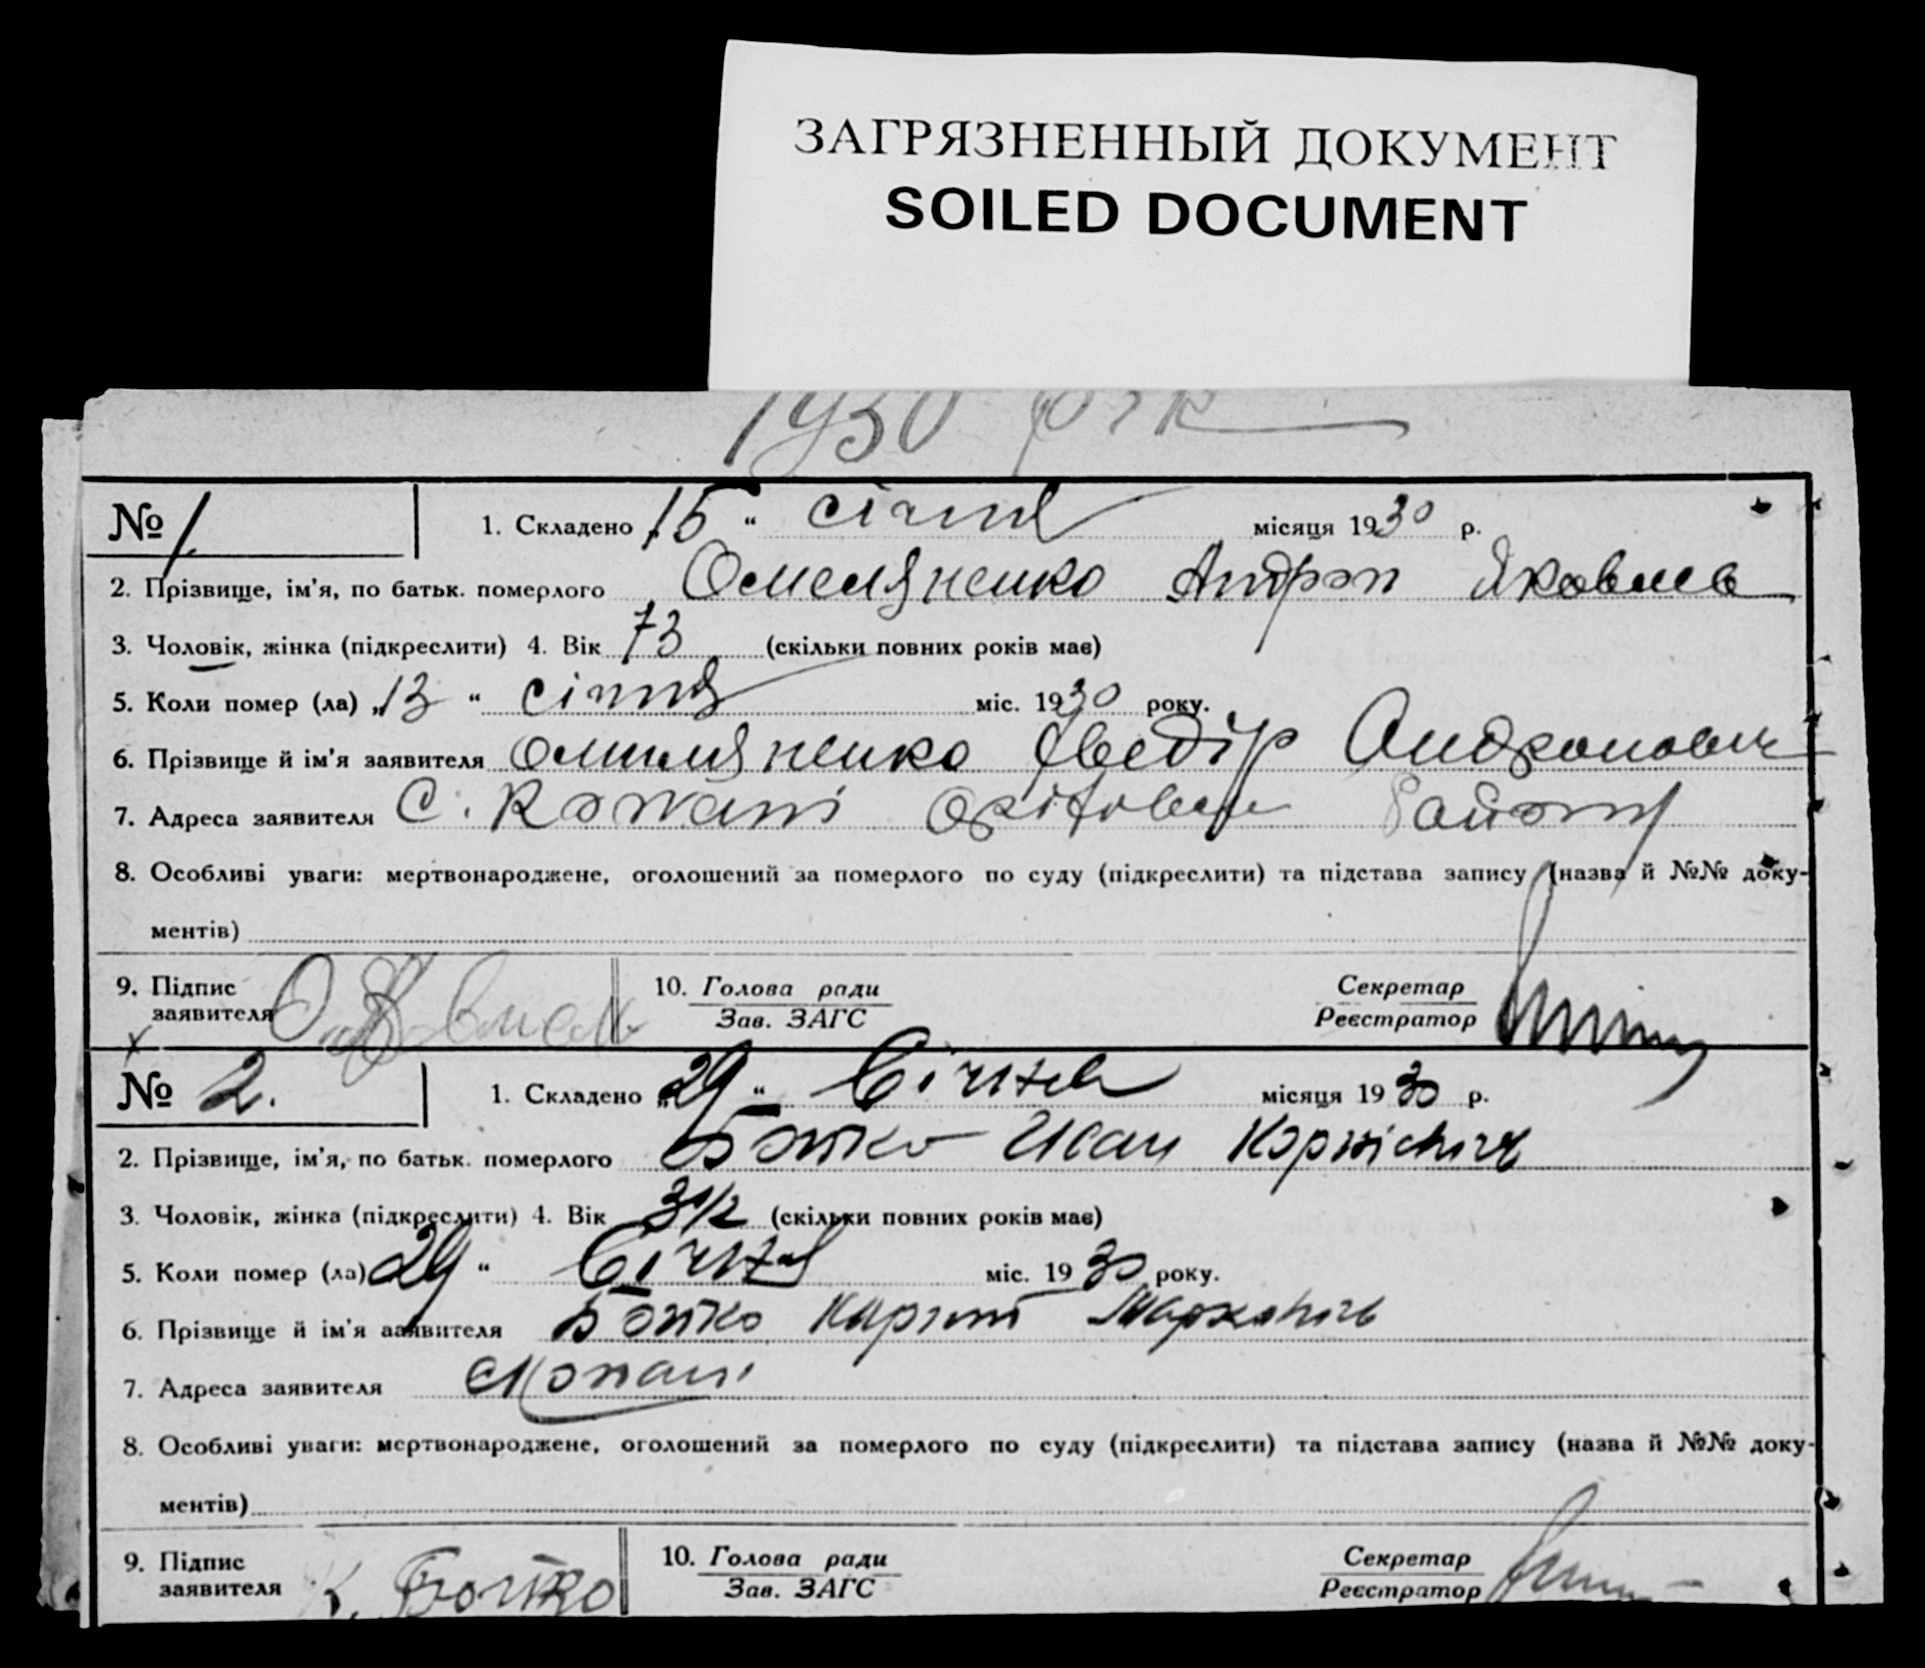 ЗАГРЯЗНЕННЫЙ ДОКУМЕНТ
SOILED DOCUMENT
1930 рік
№ 1. 1. Складено „15“ січня місяця 1930 р.
2. Прізвище, ім'я, по батьк. померлого Омеляненко Яковлев
3. Чоловік, жінка (підкреслити) 4. Вік 73 (скільки повних років має)
5. Коли помер (ла) „13“ січня міс. 1930 року.
6. Прізвище й ім'я заявителя Омиляненко Андронович
7. Адреса заявителя С. Копані району
8. Особливі уваги: мертвонароджене, оголошений за померлого по суду (підкреслити) та підстава запису (назва й №№ доку-
ментів)
9. Підпис 10. Голова ради Секретар
заявителя Зав. ЗАГС Реєстратор
№ 2. 1. Складено „29“ Січня місяця 1930 р.
2. Прізвище, ім'я, по батьк. померлого Бойко Иван
3. Чоловік, жінка (підкреслити) 4. Вік 3 1/2 (скільки повних років має)
5. Коли помер (ла) 29“ Січня міс. 1930 року.
6. Прізвище й ім'я заявителя Бойко Маркович
7. Адреса заявителя с Копані
8. Особливі уваги: мертвонароджене, оголошений за померлого по суду (підкреслити) та підстава запису (назва й №№ доку-
ментів)
9. Підпис К. Бойко 10. Голова ради Секретар
заявителя Зав. ЗАГС Реєстратор